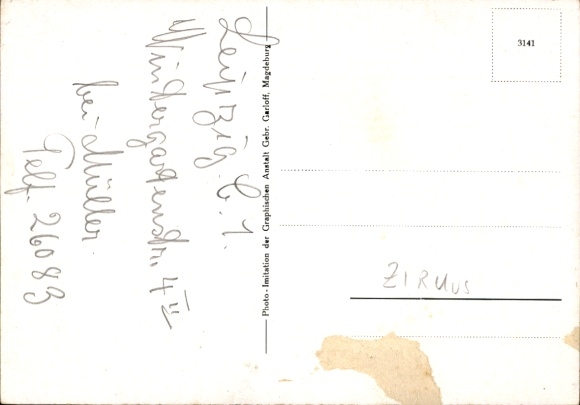 Leipzig. C. 1.
Wintergartenstr. 4 II
bei Müller
Telf. 26083
Photo-Imitation der Graphischen Anstalt Gebr. Garloff, Magdeburg
3141
ZIRKUS